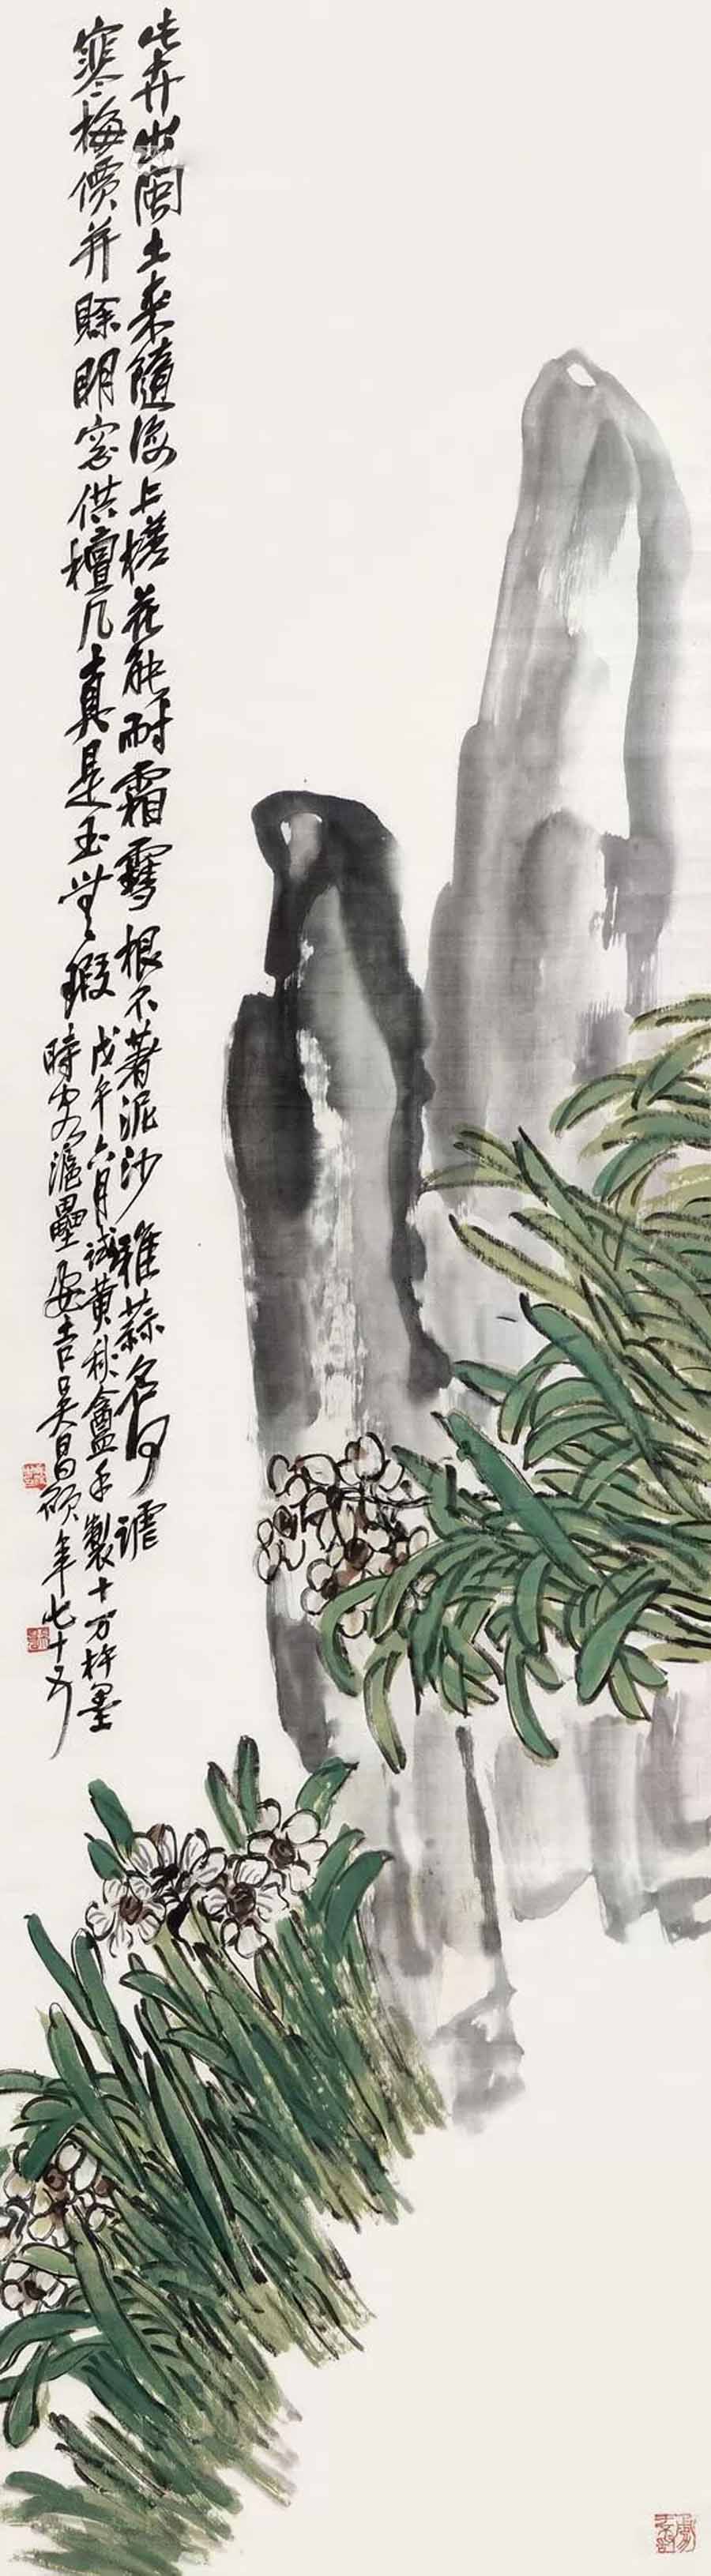 此卉出閩土来隨海上槎花能耐霜雪根不著泥沙雅蒜名何謔
寒梅價并賒明窓供檀几真是玉無瑕
戊午六月試黄秋盦手製十万杵墨
時客滬壘安吉吴昌碩年七十五